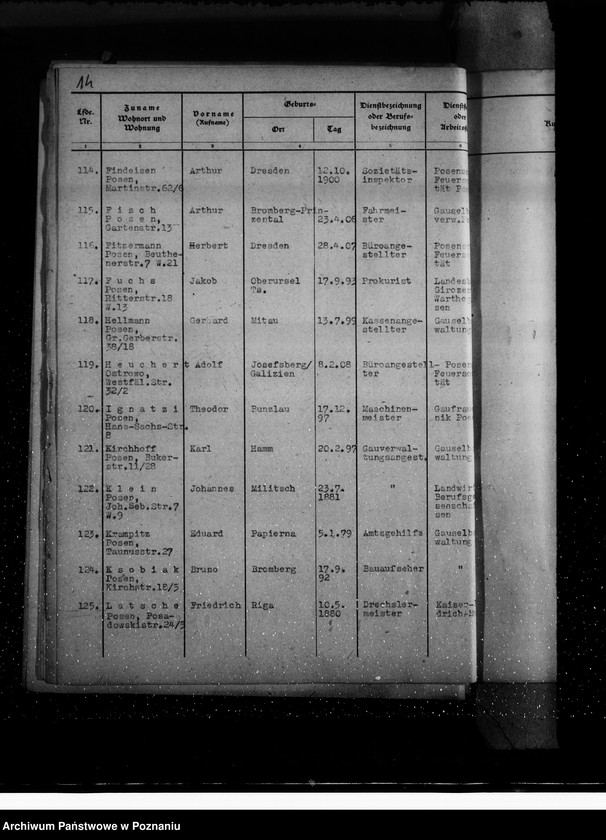 14
Lfde. Nr. Zuname Wohnort und Wohnung Vorname (Rufname) Geburts- Ort Tag Dienstbezeichnung oder Berufs- bezeichnung Dienst oder Arbeits
1 2 3 4 5 6
114. Findeisen Arthur Dresden 12.10. Sozietäts- Posens
Posen, 1900 inspektor Feuer
Martinstr.62/6 tät Po
115. F i s c h Arthur Bromberg-Prin- Fahrmei- Gausel
P o s e n, zental 23.4.06 ster verw.
Gartenstr.13
116. Fitzermann Herbert Dresden 28.4.07 Büroange- Posens
Posen, Beuthe- stellter Feuer
nerstr.7 W.21 tät
117. F u c h s Jakob Oberursel 17.9.93 Prokurist Landes
Posen, Ts. Giroze
Ritterstr.18 Warthe
W.13 sen
118. Hellmann Gerhard Mitau 13.7.99 Kassenange- Gausel
Posen, stellter waltun
Gr.Gerberstr.
38/18
119. H e u c h e r t Adolf Josefsberg/ 8.2.08 Büroangestell- Posen
Ostrowo, Galizien ter Feuerso
Westfäl.Str. tät
32/2
120. I g n a t z i Theodor Bunzlau 17.12. Maschinen- Gaufra
Posen, 97 meister nik Pos
Hans-Sachs-Str.
8
121. Kirchhoff Karl Hamm 20.2.97 Gauverwal- Gausel
Posen, Buker- tungsangest. waltung
str.11/28
122. K l e i n Johannes Militsch 23.7. " Landwir
Posen, 1881 Berufsg
Joh.Seb.Str.7 senscha
W.9 sen
123. Krampitz Eduard Papierna 5.1.79 Amtsgehilfe Gausel
Posen, waltung
Taunusstr.27
124. K s o b i a k Bruno Bromberg 17.9. Bauaufseher "
Posen, 92
Kirchstr.18/5
125. L a t s c h e Friedrich Riga 10.5. Drechsler- Kaiser-
Posen, Posa- 1880 meister drich-
dowskistr.24/5
Archiwum Państwowe w Poznaniu